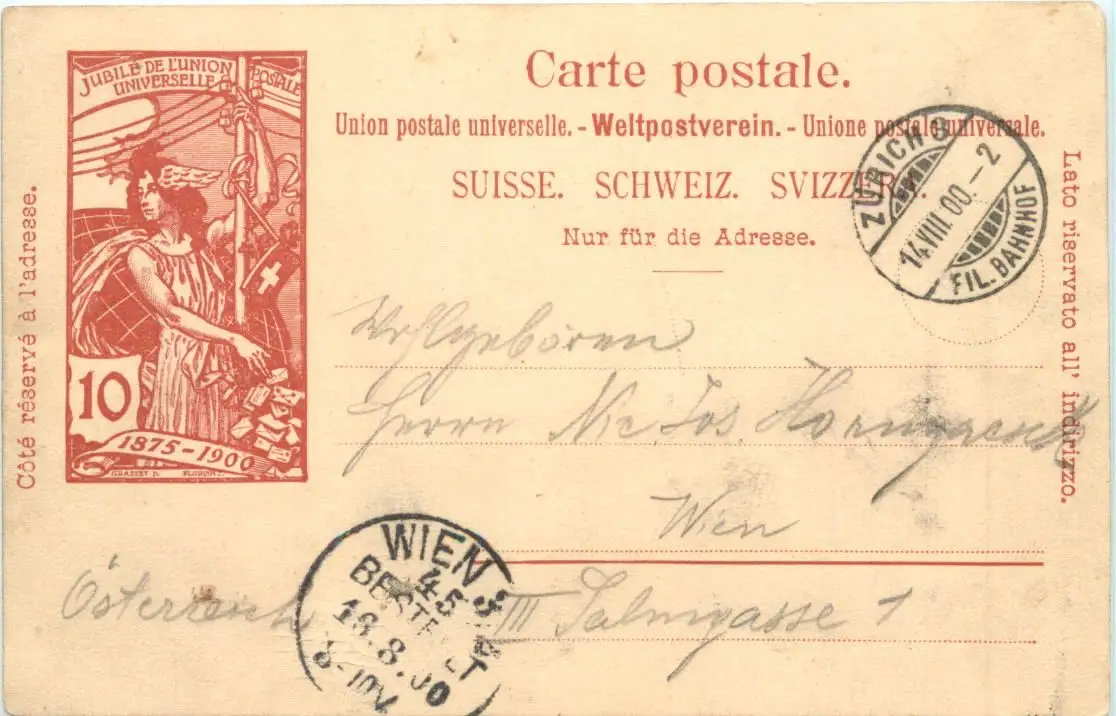 JUBILÉ DE L'UNION
UNIVERSELLE POSTALE
10
1875-1900
GRASSET D.
Côté réservé à l'adresse.
Carte postale.
Union postale universelle. - Weltpostverein. - Unione postale universale.
SUISSE. SCHWEIZ. SVIZZERA.
Nur für die Adresse.
Lato riservato all' indirizzo.
ZÜRICH 8
14.VIII.00.-2
FIL. BAHNHOF
Wohlgeboren
Herrn Jos.
Wien
Österreich III Salmgasse 1
WIEN 3
45
BESTELLT
16.8.00
8-10V